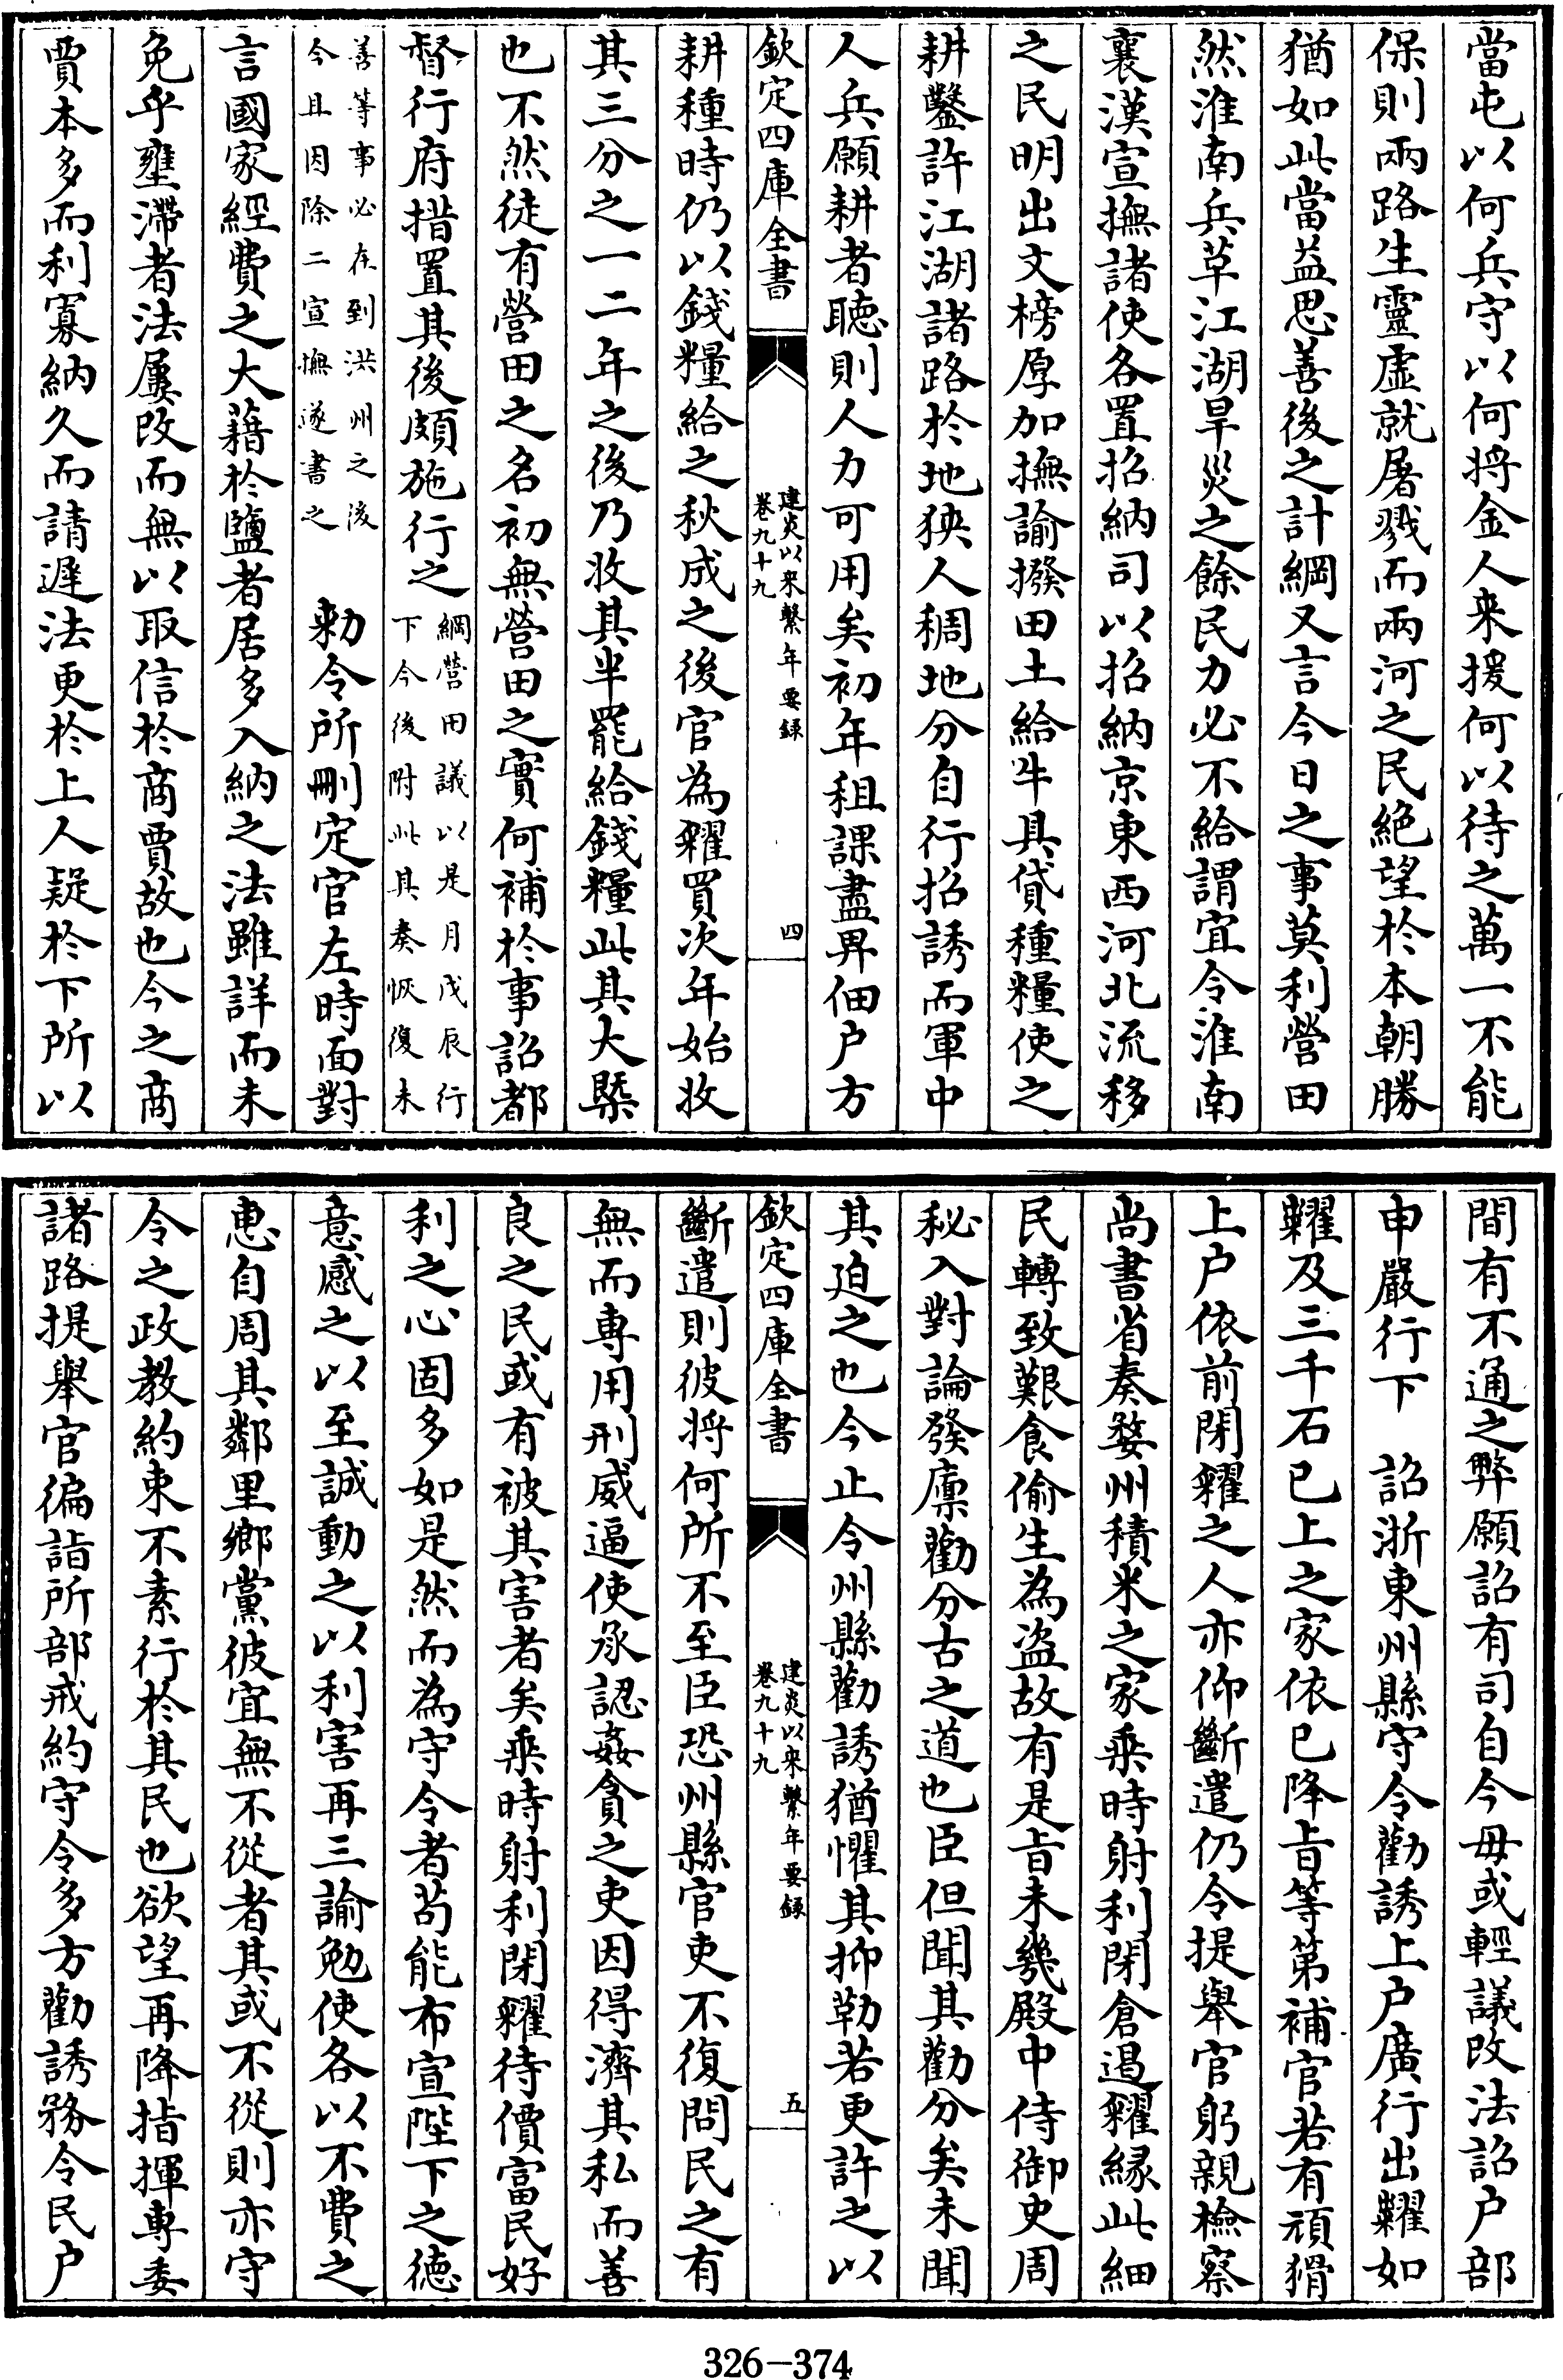 當屯以何兵守以何将金人来援何以待之萬一不能
保則兩路生靈虛就屠戮而兩河之民絶望於本朝勝
猶如此當益思善後之計綱又言今日之事莫利營田
然淮南兵革江湖旱災之餘民力必不給謂宜令淮南
襄漢宣撫諸使各置招納司以招納京東西河北流移
之民明出文榜厚加撫諭撥田土給牛具貸種糧使之
耕鑿許江湖諸路於地狹人稠地分自行招誘而軍中
人兵願耕者聴則人力可用矣初年租課盡畀佃户方
欽定四庫全書
建炎以來繫年要録
卷九十九
四
耕種時仍以錢糧給之秋成之後官為糴買次年始收
其三分之一二年之後乃收其半罷給錢糧此其大槩
也不然徒有營田之名初無營田之實何補於事詔都
督行府措置其後頗施行之
綱營田議以是月戊辰行
下今後附此其奏恢復未
善等事必在到洪州之後
今且因除二宣撫遂書之
勅令所刪定官左時面對
言國家經費之大藉於鹽者居多入納之法雖詳而未
免乎壅滯者法屢改而無以取信於商賈故也今之商
賈本多而利寡納久而請遲法更於上人疑於下所以
間有不通之弊願詔有司自今毋或輕議改法詔户部
申嚴行下　詔浙東州縣守令勸誘上户廣行出糶如
糶及三千石已上之家依已降旨等第補官若有頑猾
上户依前閉糶之人亦仰斷遣仍令提舉官躬親檢察
尚書省奏婺州積米之家乘時射利閉倉遏糶縁此細
民轉致艱食偷生為盜故有是旨未幾殿中侍御史周
秘入對論發廪勸分古之道也臣但聞其勸分矣未聞
其迫之也今止令州縣勸誘猶懼其抑勒若更許之以
欽定四庫全書
建炎以來繫年要録
卷九十九
五
斷遣則彼将何所不至臣恐州縣官吏不復問民之有
無而專用刑威逼使承認姦貪之吏因得濟其私而善
良之民或有被其害者矣乘時射利閉糶待價富民好
利之心固多如是然而為守令者苟能布宣陛下之德
意感之以至誠動之以利害再三諭勉使各以不費之
惠自周其鄰里鄉黨彼宜無不從者其或不從則亦守
令之政教約束不素行於其民也欲望再降指揮專委
諸路提舉官徧詣所部戒約守令多方勸誘務令民户
326—374